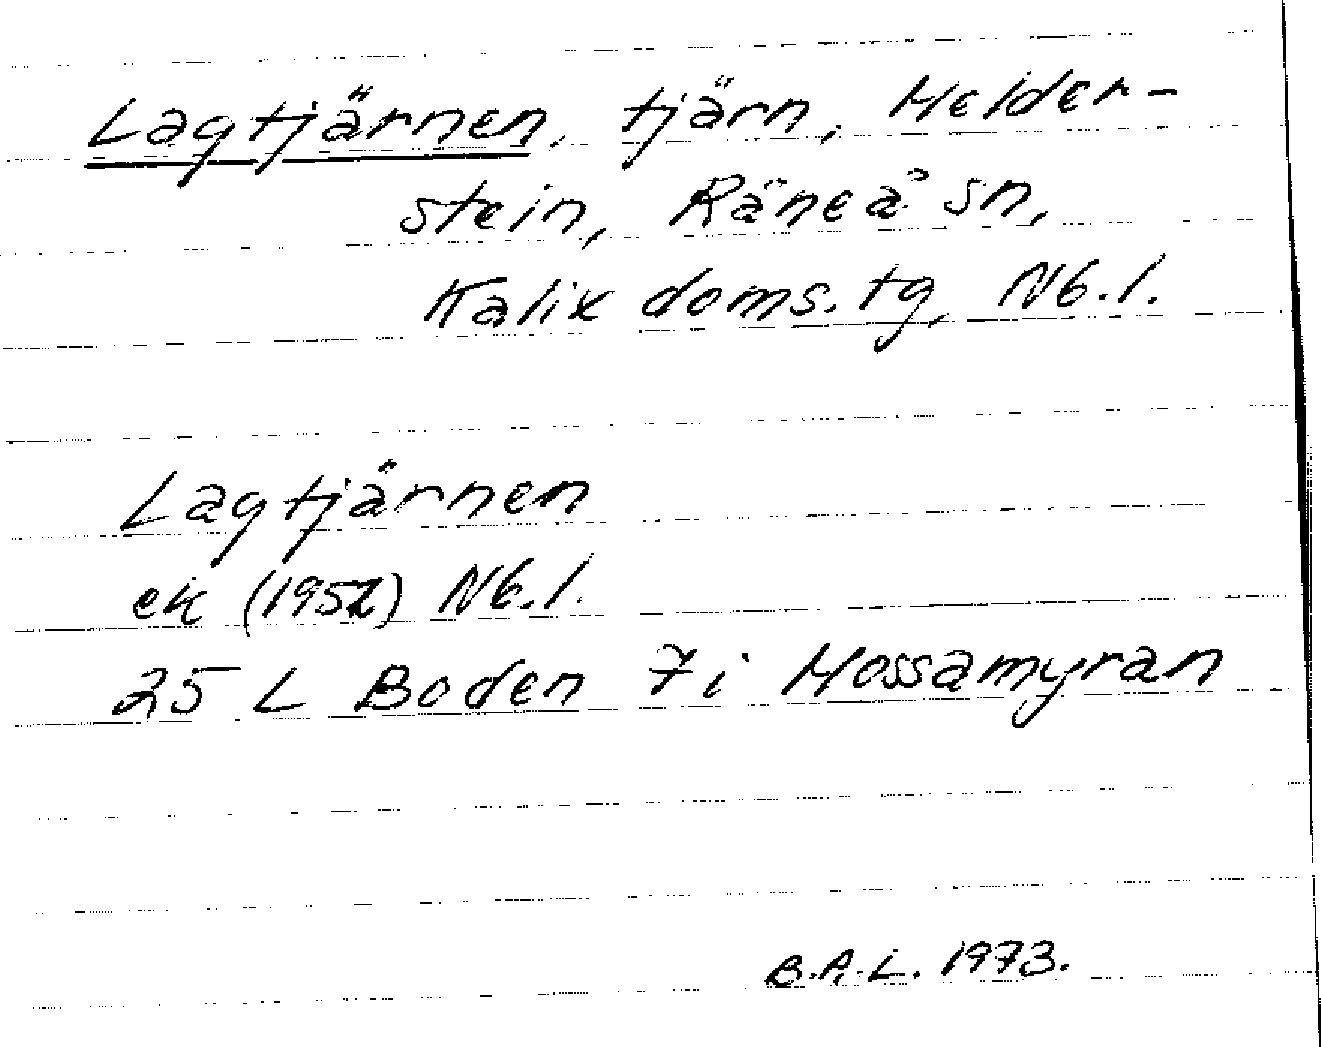 Lagtjärnen, tjärn, Melder-
stein, Råneå sn,
Kalix doms. tg, Nb.l.
Lagtjärnen
ek (1952) Nb.l.
25 L Boden 7 i Mossamyran
B.A.L. 1973.